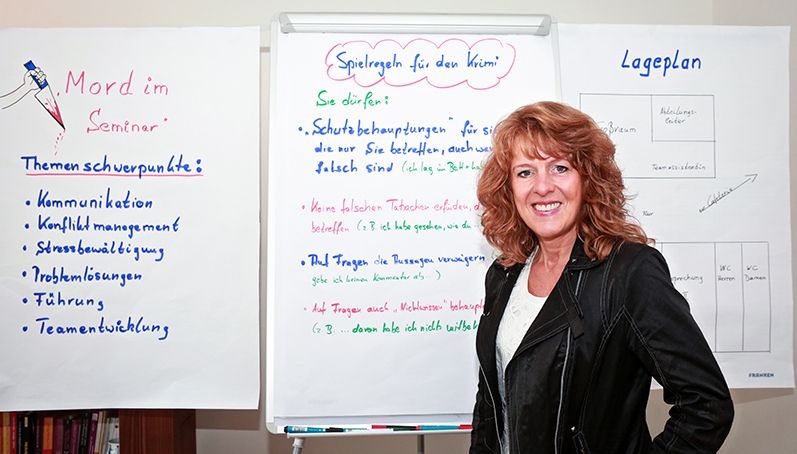 „Mord im
Seminar"
Themenschwerpunkte:
• Kommunikation
• Konfliktmanagement
• Stressbewältigung
• Problemlösungen
• Führung
• Teamentwicklung
Spielregeln für den Krimi
Sie dürfen:
• „Schutzbehauptungen" für si
die nur Sie betreffen, auch wen
falsch sind (ich lag im Bett +
• Keine falschen Tatsachen erfinden, d
betreffen (z.B. ich habe gesehen, wie du
• Auf Fragen die Aussagen verweigern
gebe ich keinen Kommentar ab...)
• Auf Fragen auch „Nichtwissen" behaup
(z.B. ... davon habe ich nichts mitbek
Lageplan
Abteilungs-
leiter
Teamassistentin
WC
Herren
WC
Damen
FRANKEN